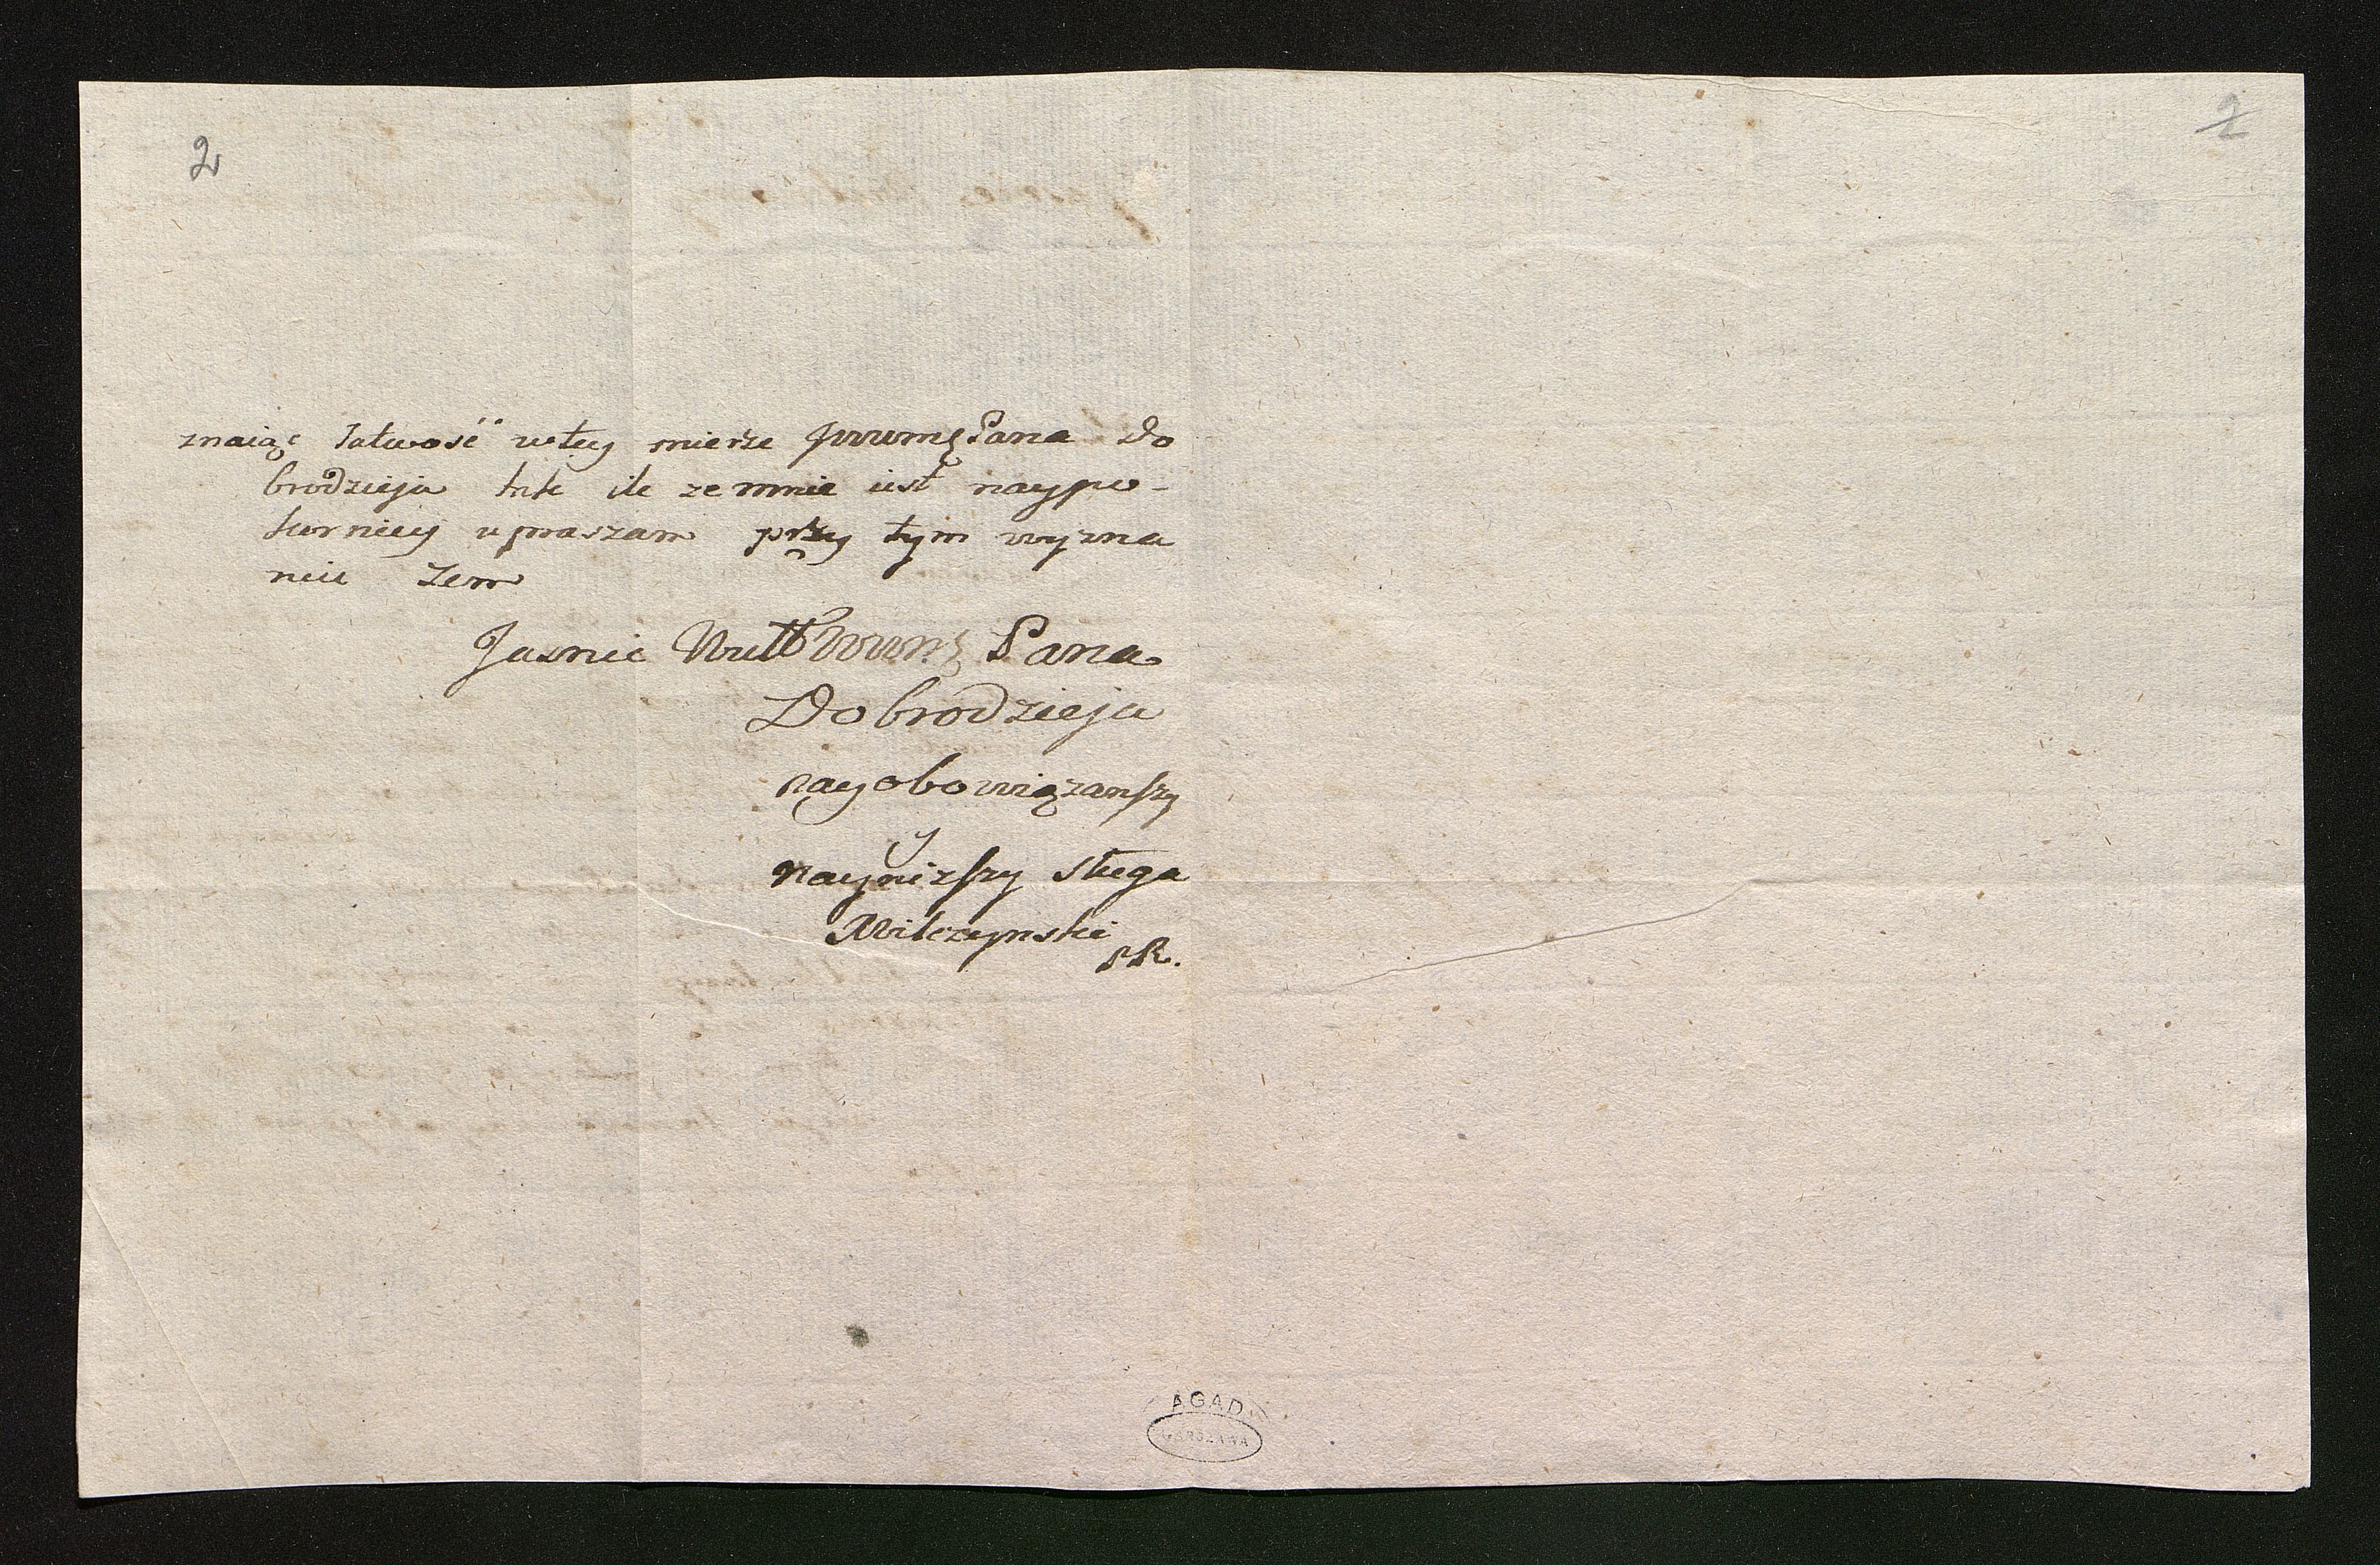 2
1
znaiąc łatwość wtey mierze JWWMę Pana Do
brodzieja tak ile ze mnie iest naypo-
korniey upraszam przy tym wyzna
niu żem
Jasnie Wiel Wumę Pana
Dobrodzieja
nayobowiązanszy
y
nayniższy sługa
Wilczynski
SR.
AGAD
WARSZAWA